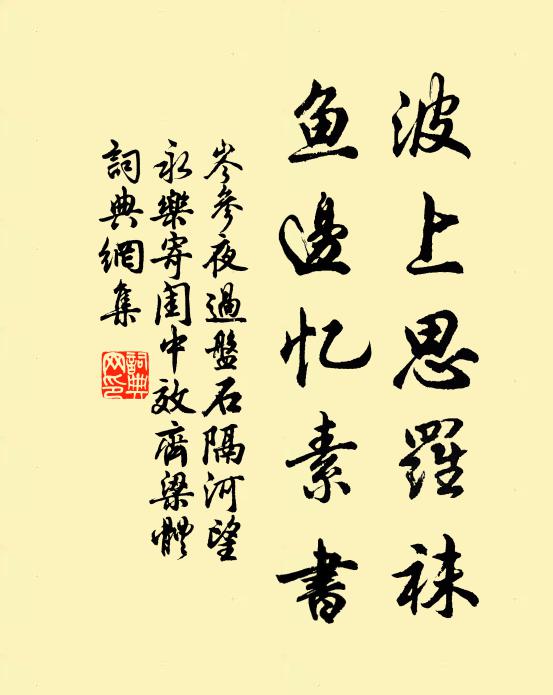 波上思羅袜
鱼邊忆素書
岑參夜過盤石隔河望
永樂寄閨中效齊梁體
詞典網集
詞典网印